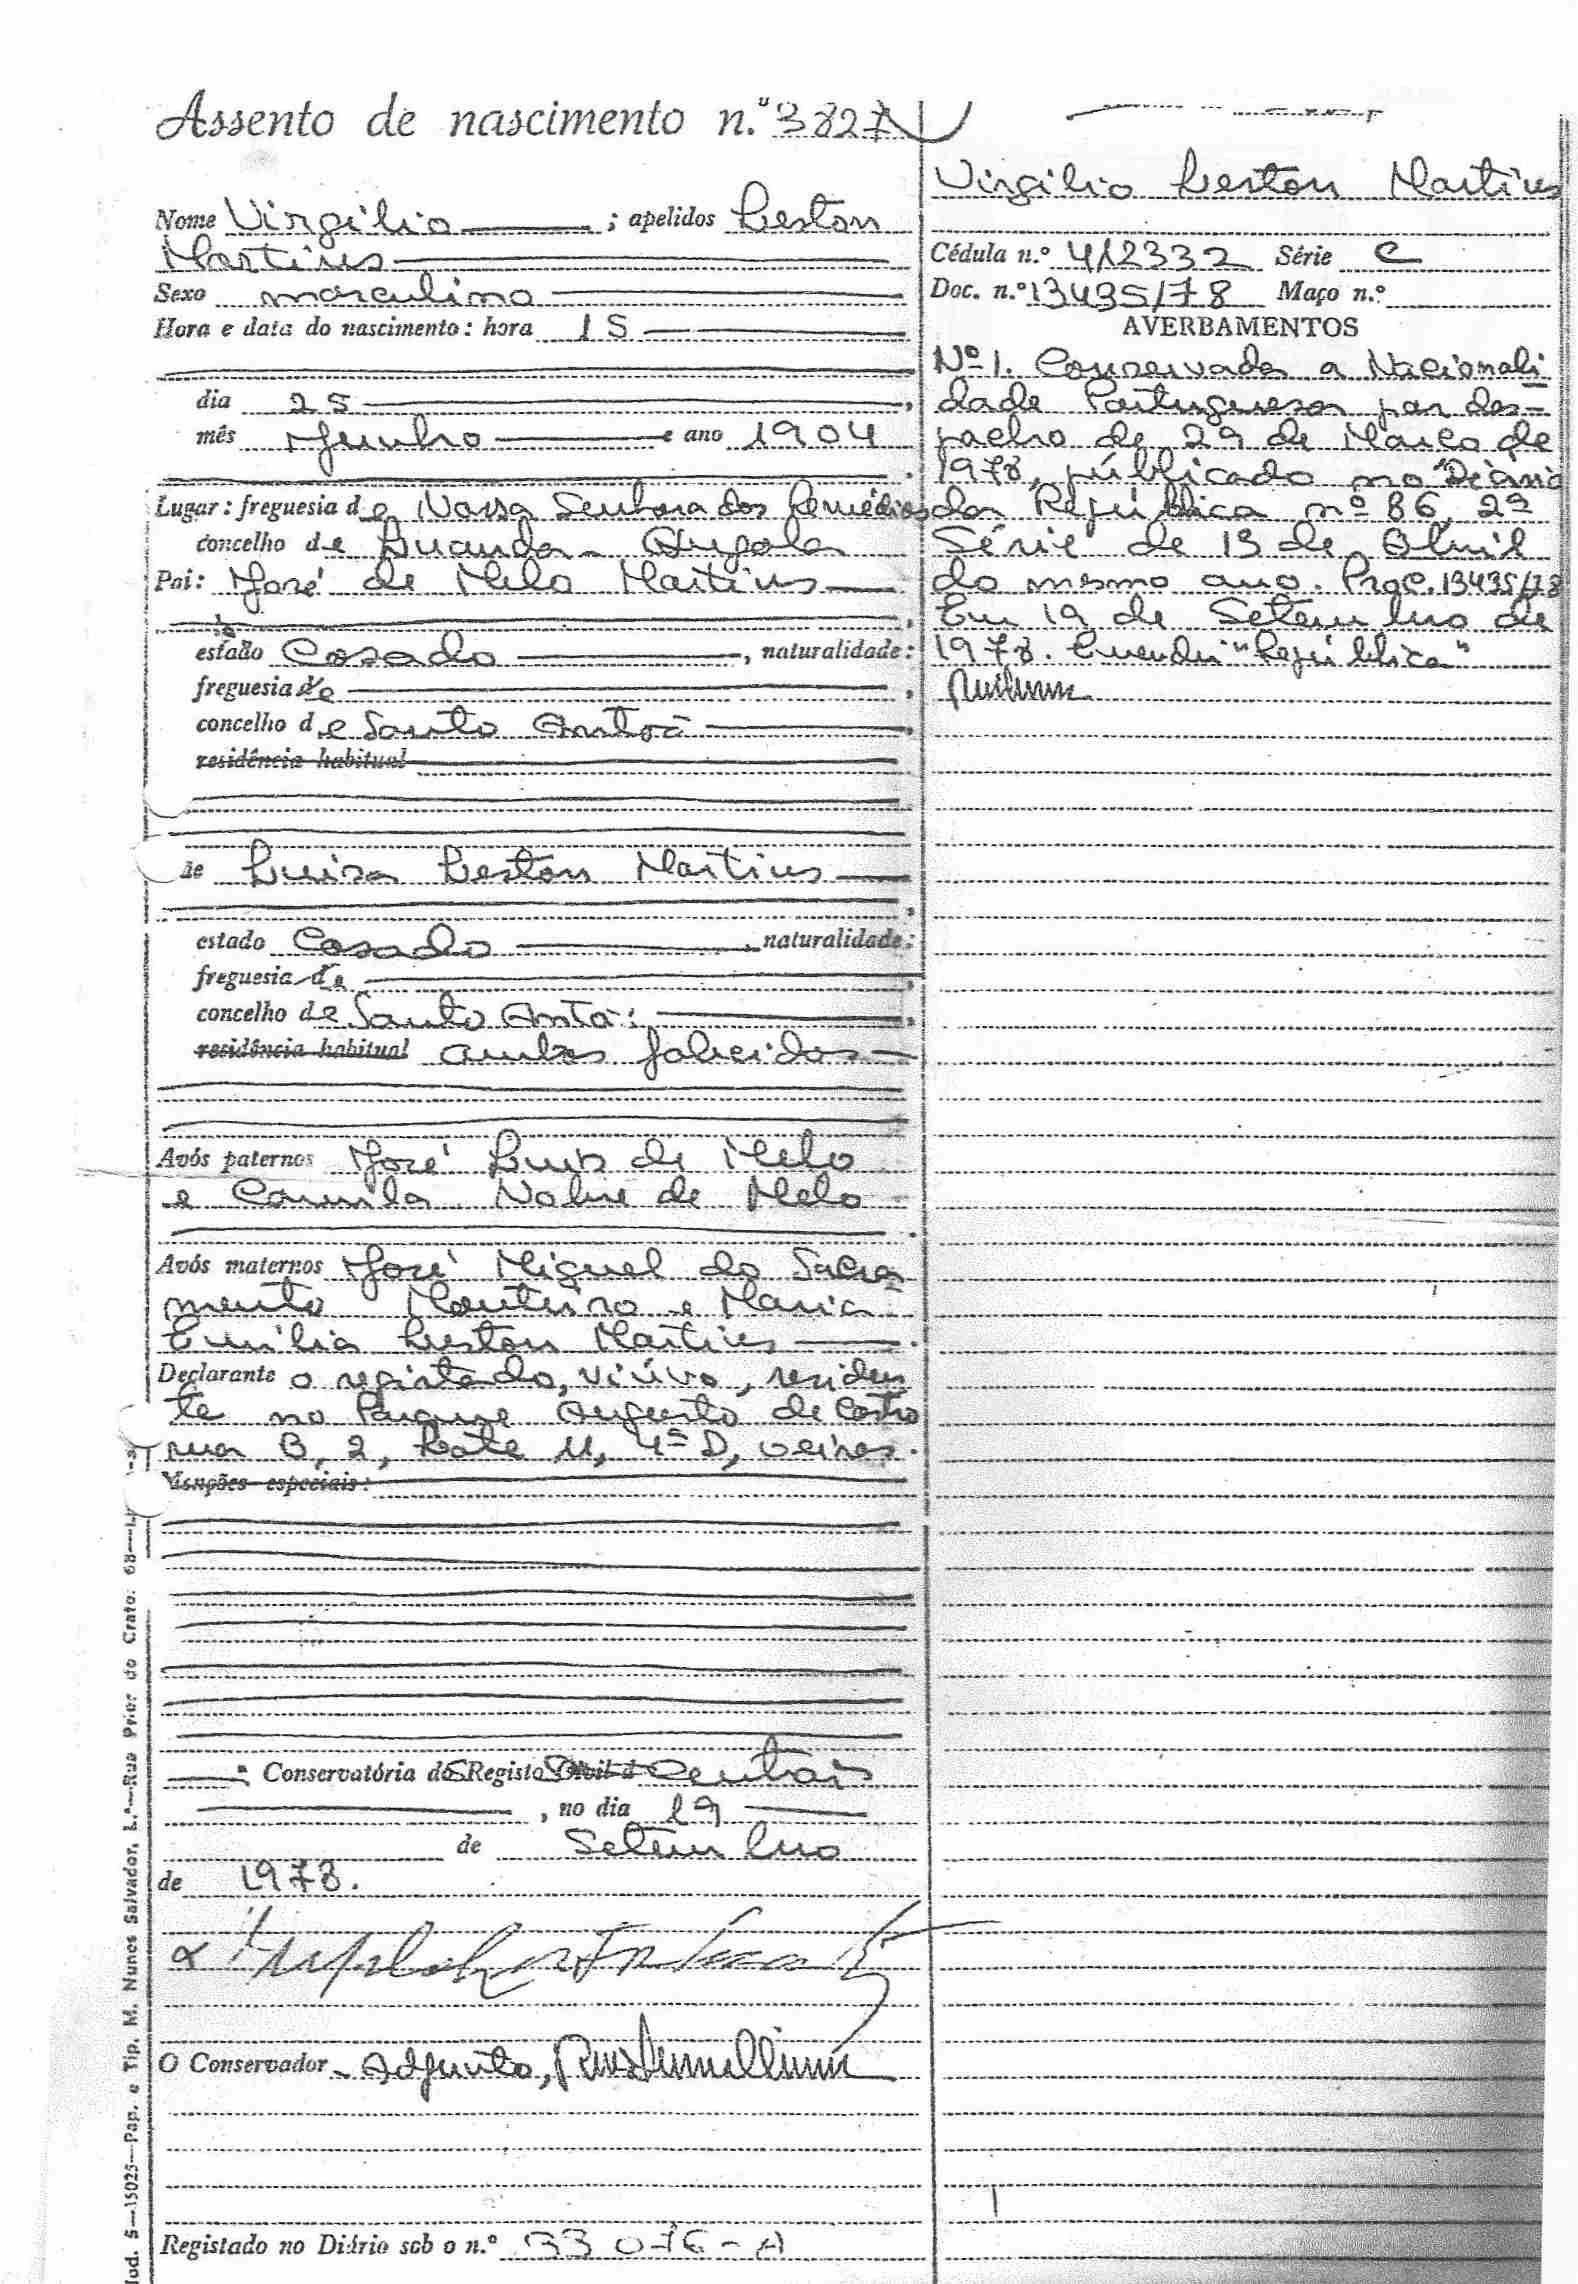 Assento de nascimento n.º 3827
Nome Virgilio ; apelidos Leston
Martins
Sexo masculino
Hora e data do nascimento: hora 15
dia 25
mês Junho e ano 1904
Lugar: freguesia de Nossa Senhora dos Remédios
concelho de Luanda - Angola
Pai: José de Melo Martins
estado Casado, naturalidade:
freguesia de
concelho de Santo Antão
residência habitual
de Luisa Leston Martins
estado Casado, naturalidade:
freguesia de
concelho de Santo Antão
residência habitual ambos falecidos
Avós paternos José Luis de Melo
e Camila Nobre de Melo
Avós maternos José Miguel do Sacra
mento Monteiro e Maria
Emilia Leston Martins
Declarante o registado, viúvo, residen
te no Parque Augusto de Castro
rua B, 2, Lote 11, 4º D, Oeiras.
Menções especiais:
Conservatória dos Registos Civil d Centrais
, no dia 19
de Setembro
de 1978.
O Conservador - Adjunto,
Registado no Diário sob o n.º 33 076-A
Virgilio Leston Martins
Cédula n.º 412332 Série C
Doc. n.º 13435/78 Maço n.º
AVERBAMENTOS
Nº 1. Conservada a Nacionali
dade Portuguesa por des-
pacho de 29 de Março de
1978, públicado no "Diário
da República nº 86, 2ª
Série de 13 de Abril
do mesmo ano. Proc. 13435/78
Em 19 de Setembro de
1978. Emendei "República"
Mod. 5—15025—Pap. e Tip. M. Nunes Salvador, L.ª—Rua Prior do Crato, 68—L